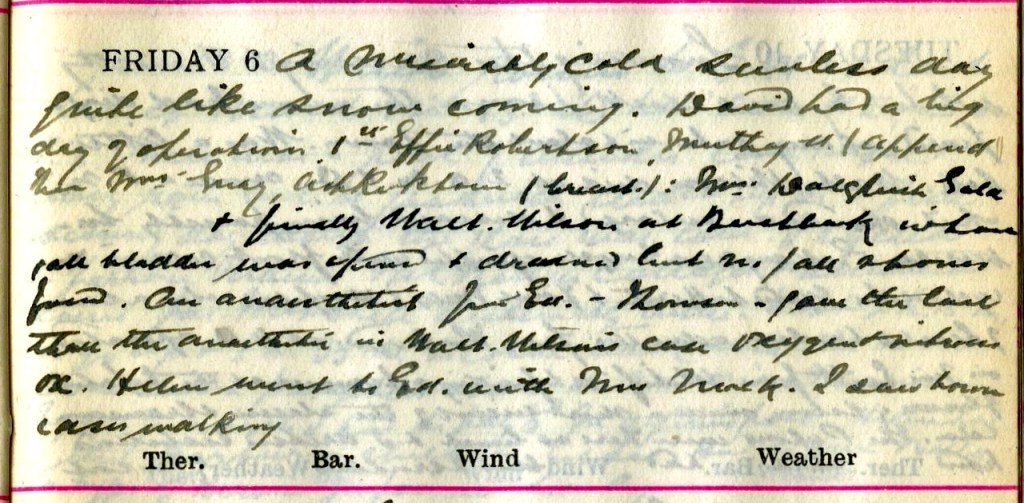 FRIDAY 6 A miserably cold sunless day
quite like snow coming. David had a big
day of operations. 1st Effie Robertson, (append
then Mrs Gray, (breast): Mrs Dalgleish Gala
+ finally Walt. Wilson at in whom
gall bladder was opened + drained but no gall stones
found. An anaesthetist from Ed. - Thomson - gave the last
three the anaesthetic in Walt. Wilson's case oxygen + nitrous
ox. Helen went to Ed. with Mrs I saw town
cases walking
Ther. Bar. Wind Weather